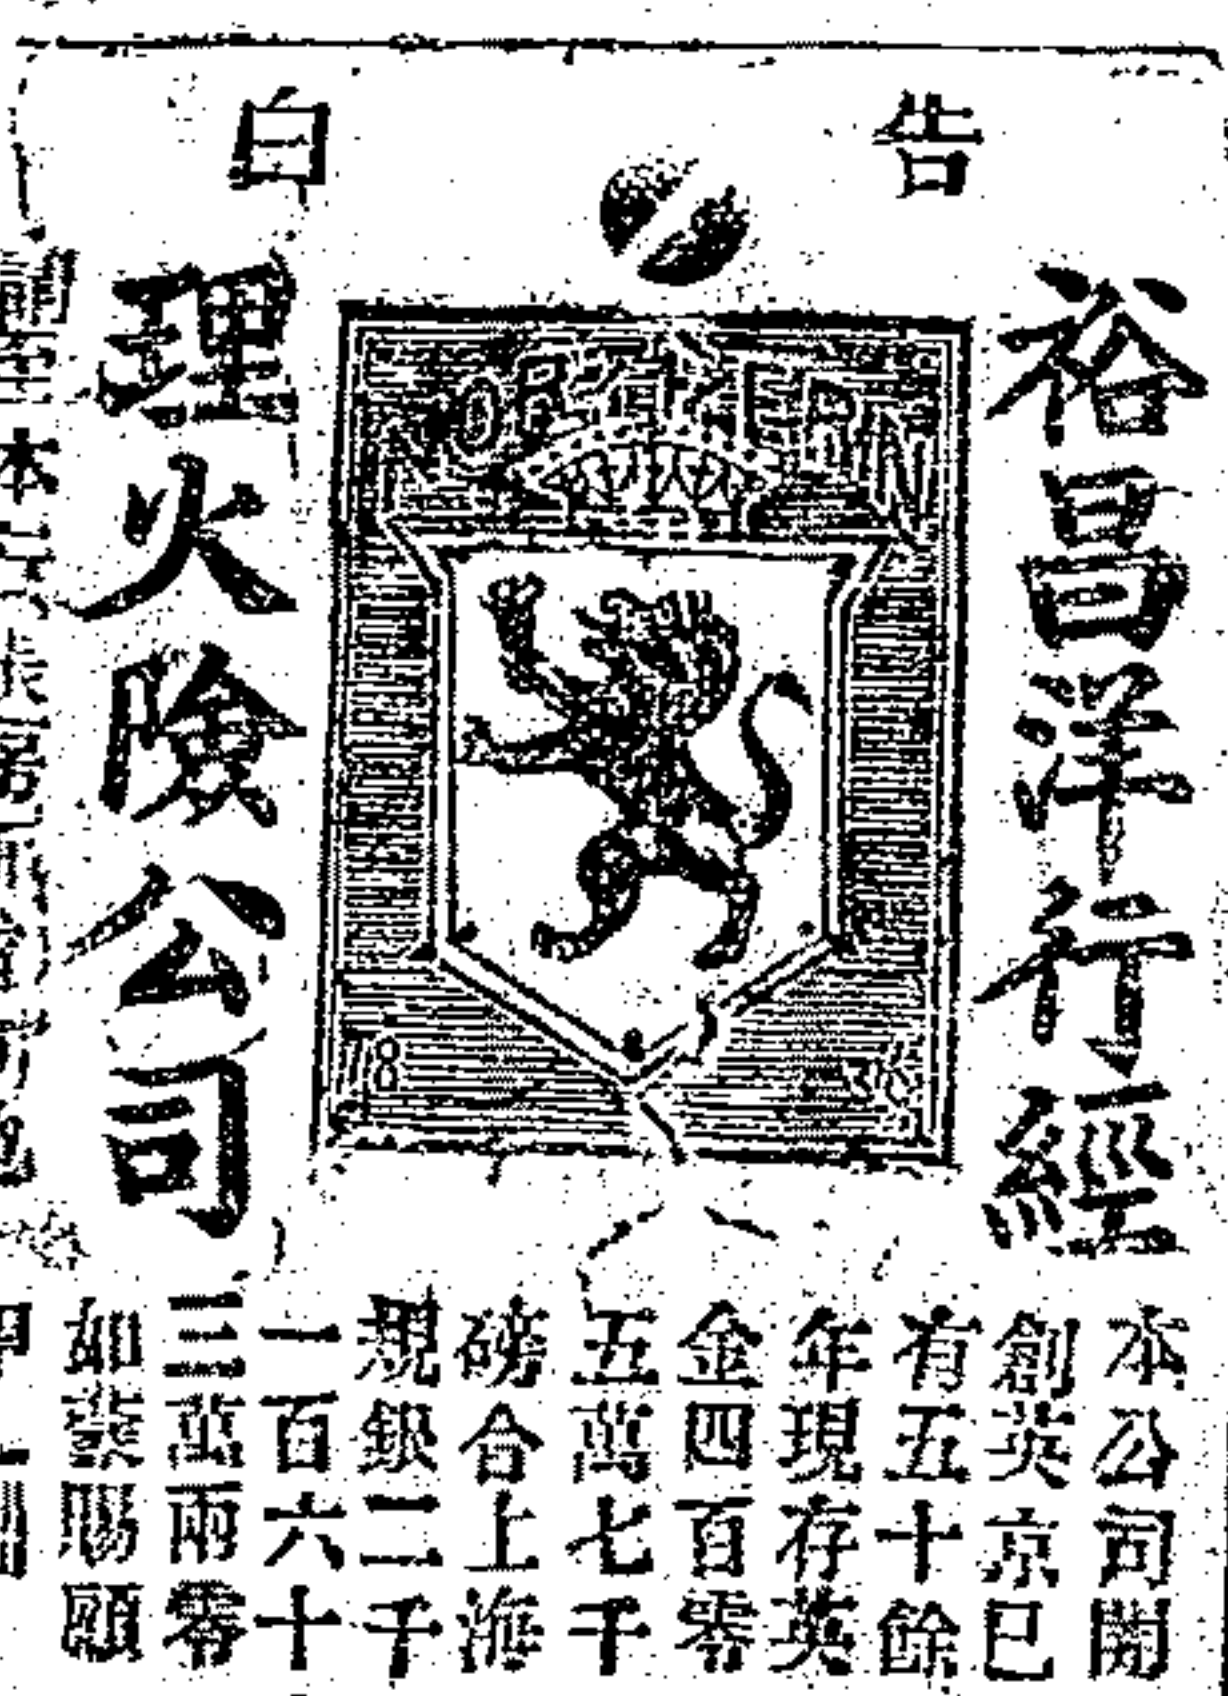 告白
裕昌洋行經
理火險公司
NORTHERN
18 36
本公司開
創英京已
有五十餘
年現存英
金四百零
五萬七千
磅合上海
規銀二千
一百六十
三萬兩零
如蒙賜顧